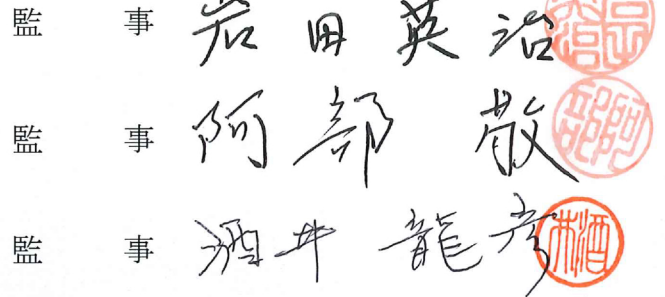 監事 岩田英治
監事 阿部 散
監事 酒井 龍彦